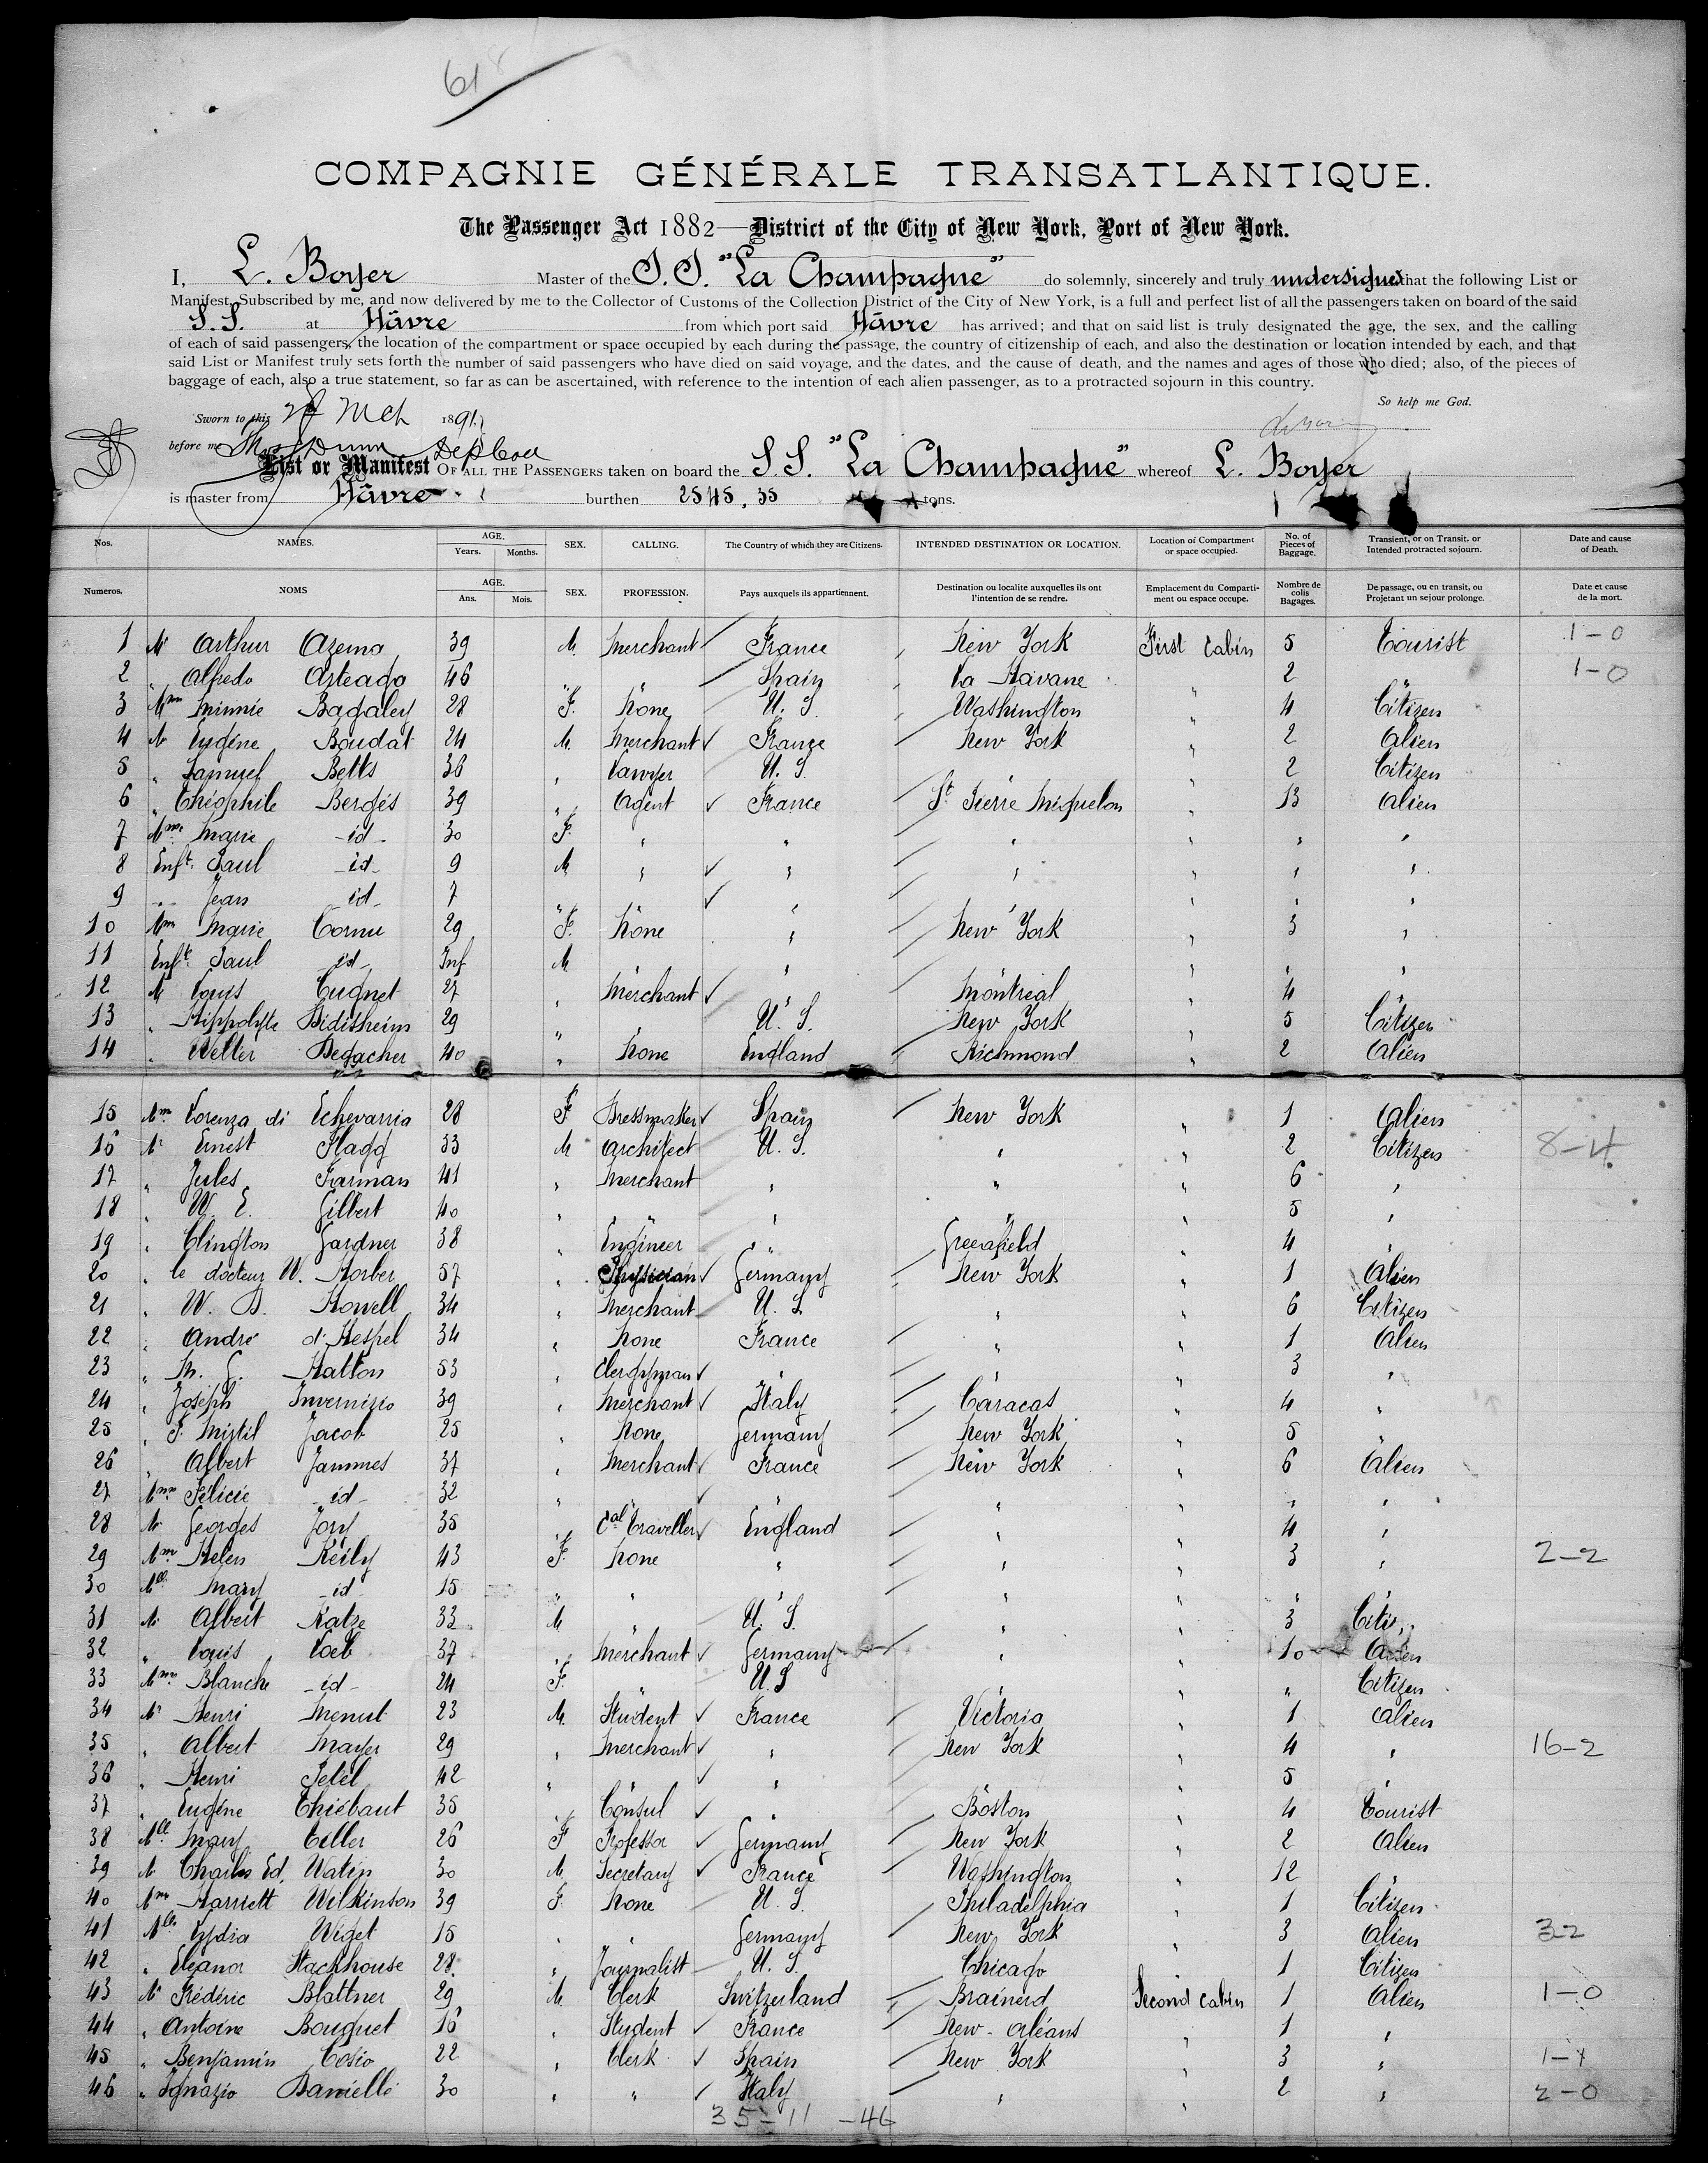 618
COMPAGNIE GÉNÉRALE TRANSATLANTIQUE.
The Passenger Act 1882—District of the City of New York, Port of New York.
I, L. Boyer Master of the S.S. "La Champagne" do solemnly, sincerely and truly undersigned that the following List or
Manifest, Subscribed by me, and now delivered by me to the Collector of Customs of the Collection District of the City of New York, is a full and perfect list of all the passengers taken on board of the said
S.S. at Hâvre from which port said Hâvre has arrived; and that on said list is truly designated the age, the sex, and the calling
of each of said passengers, the location of the compartment or space occupied by each during the passage, the country of citizenship of each, and also the destination or location intended by each, and that
said List or Manifest truly sets forth the number of said passengers who have died on said voyage, and the dates, and the cause of death, and the names and ages of those who died; also, of the pieces of
baggage of each, also a true statement, so far as can be ascertained, with reference to the intention of each alien passenger, as to a protracted sojourn in this country.
So help me God.
Sworn to this Mch 1891
before me
List or Manifest OF ALL THE PASSENGERS taken on board the S.S. "La Champagne" whereof L. Boyer
is master from Hâvre burthen 2545,35 tons.
Nos. NAMES. AGE. Years. Months. SEX. CALLING. The Country of which they are Citizens. INTENDED DESTINATION OR LOCATION. Location of Compartment or space occupied. No. of Pieces of Baggage. Transient, or on Transit, or Intended protracted sojourn. Date and cause of Death.
Numeros. NOMS AGE. Ans. Mois. SEX. PROFESSION. Pays auxquels ils appartiennent. Destination ou localite auxquelles ils ont l'intention de se rendre. Emplacement du Compartiment ou espace occupe. Nombre de colis Bagages. De passage, ou en transit, ou Projetant un sejour prolonge. Date et cause de la mort.
1 Mr Arthur Azema 39 M. Merchant France New York First Cabin 5 Tourist 1-0
2 " Alfredo Arteago 46 " " Spain La Havane " 2 " 1-0
3 Mme Minnie Bagaley 28 F. None U.S. Washington " 4 Citizen
4 Mr Eugéne Boudat 24 M. Merchant France New York " 2 Alien
5 " Samuel Betts 36 " Lawyer U.S. " " 2 Citizen
6 " Théophile Bergés 39 " Agent France St Pierre Miquelon " 13 Alien
7 Mme Marie id 30 F. " " " " " "
8 Enft. Paul id 9 M " " " " " "
9 " Jean id 7 " " " " " "
10 Mme Marie Cornu 29 F. None " New York " 3 "
11 Enft. Paul id Inf M " " " " " "
12 M Louis Cugnet 27 " Merchant " Montréal " 4 "
13 " Hippolyte Diditsheim 29 " " U.S. New York " 5 Citizen
14 " Welter Degacher 40 " None England Richmond " 2 Alien
15 Mme Lorenza di Echevarria 28 F Dressmaker Spain New York " 1 Alien
16 Mr Ernest Flagg 33 M Architect U.S. " " 2 Citizen 8-4
17 " Jules Farman 41 " Merchant " " " 6 "
18 " W. E. Gilbert 40 " " " " " 5 "
19 " Clington Gardner 38 " Engineer " Greenfield " 4 "
20 " le docteur W. Korber 57 " Physician Germany New York " 1 Alien
21 " W. D. Howell 34 " Merchant U.S. " " 6 Citizen
22 " André d'Hespel 34 " None France " " 1 Alien
23 " Th. G. Halton 53 " Clergyman " " " 3 "
24 " Joseph Invernizio 39 " Merchant Italy Caracas " 4 "
25 " F. Mistil Jacob 25 " None Germany New York " 5 "
26 " Albert Jammes 37 " Merchant France New York " 6 Alien
27 Mme Félicie id 32 " " " " " "
28 Mr Georges Jory 35 " Cal Traveller England " " 4 "
29 Mme Helen Reily 43 F. None " " " 3 " 2-2
30 Mlle Mary id 15 " " " " " "
31 Mr Albert Katze 33 M U.S. " " 3 Citiz.
32 " Louis Loeb 37 " Merchant Germany " " 10 Alien
33 Mme Blanche id 24 F. U.S " " Citizen
34 Mr Henri Menut 23 M. Student France Victoria " 1 Alien
35 " Albert Mayer 29 " Merchant " New York " 4 " 16-2
36 " Henri Petel 42 " " " " 5 "
37 " Eugéne Thiébaut 35 Consul " Boston " 4 Tourist
38 Mlle Mary Tiller 26 F Professor Germany New York " 2 Alien
39 M Charles Ed. Watin 30 M. Secretary France Washington " 12 "
40 Mme Harriett Wilkinson 39 F. None U.S. Philadelphia " 1 Citizen
41 Mlle Lydia Wiget 15 " " Germany New York " 3 Alien 3-2
42 " Eleanor Stackhouse 28 " Journalist U.S. Chicago " 1 Citizen
43 Mr Frédéric Blattner 29 M. Clerk Switzerland Brainerd Second Cabin 1 Alien 1-0
44 " Antoine Bouquet 16 " Student France New-Orléans " 1 "
45 " Benjamin Cosio 22 " Clerk Spain New York " 3 "
46 " Ignazio Danielli 30 " " Italy " " 2 " 2-0
35-11-46